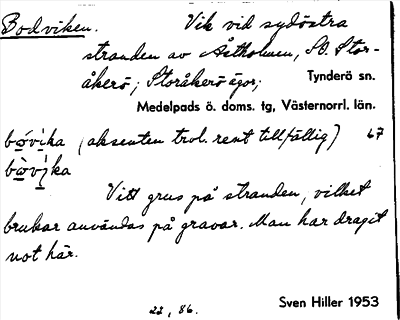 Bodviken. Vik vid sydöstra
stranden av Åstholmen, St. Stor-
åkerö; Storåkerö ägor; Tynderö sn.
Medelpads ö. doms. tg, Västernorrl. län.
(aksenten trol. rent tillfällig) 67
Vitt grus på stranden, vilket
brukar användas på gravar. Man har dragit
not här.
22, 86. Sven Hiller 1953